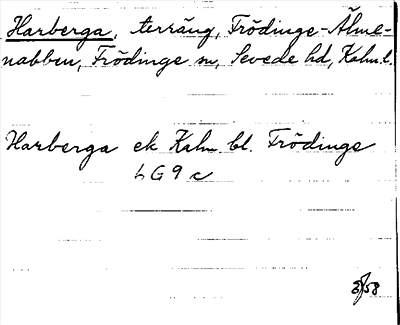 Harberga, terräng, Frödinge-Älme-
nabben, Frödinge sn, Sevede hd, Kalm. l.
Harberga ek Kalm bl. Frödinge
6G9c
3/58